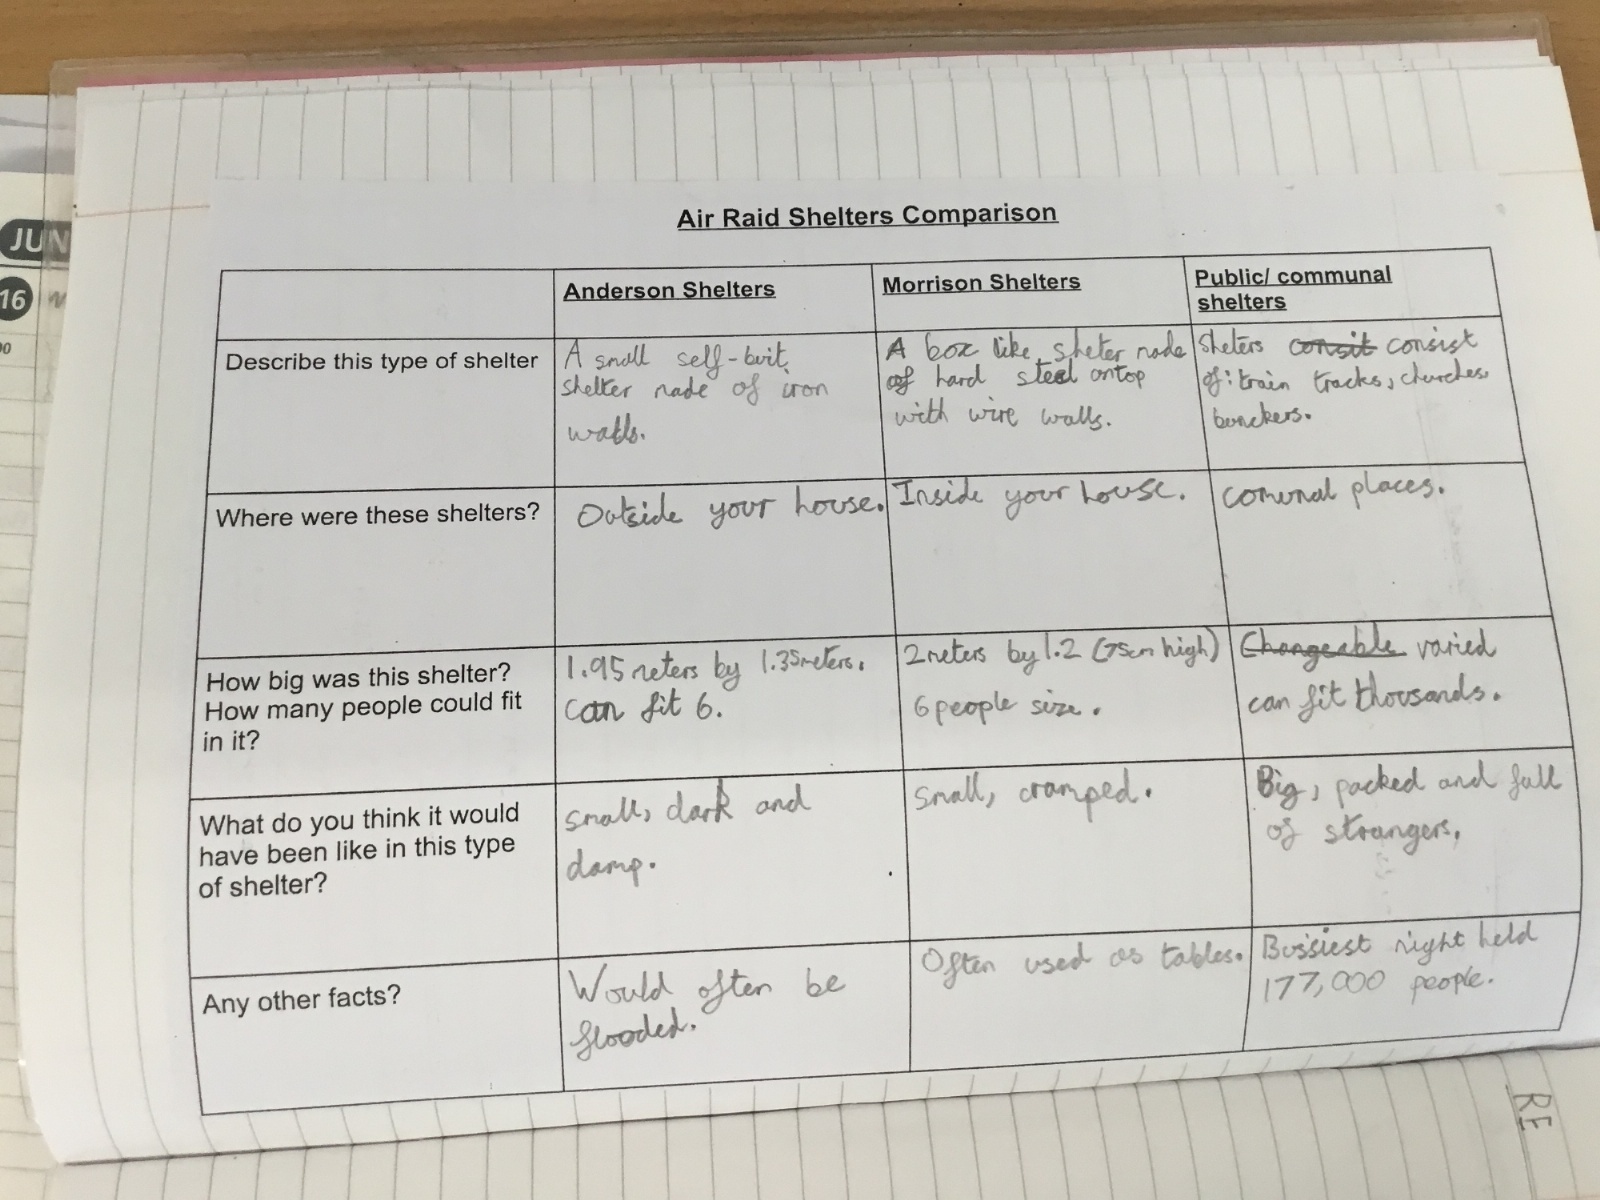 JUN
16
Air Raid Shelters Comparison
Anderson Shelters
Morrison Shelters
Public/ communal
shelters
Describe this type of shelter
A small self-buit
shelter made of iron
walls.
A box like sheter made
of hard steel ontop
with wire walls.
Sheters consit consist
of: train tracks, churches
bunckers.
Where were these shelters?
Outside your house.
Inside your house.
comunal places.
How big was this shelter?
How many people could fit
in it?
1.95 meters by 1.35 meters.
Can fit 6.
2 meters by 1.2 (75cm high)
6 people size.
Changeable varied
can fit thousands.
What do you think it would
have been like in this type
of shelter?
small, dark and
damp.
Small, cramped.
Big, packed and full
of strangers.
Any other facts?
Would often be
flooded.
Often used as tables.
Bussiest night held
177,000 people.
RE